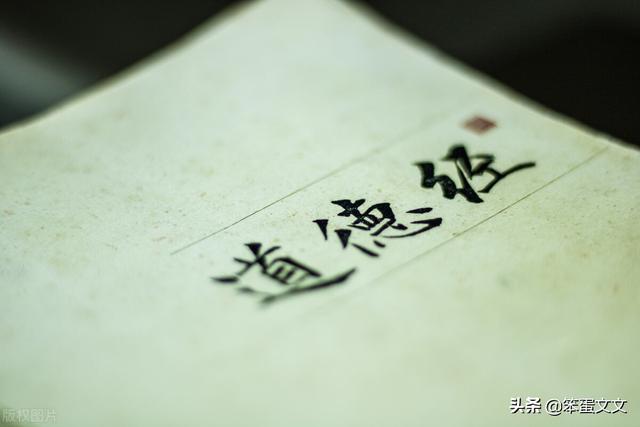 道德经
版权图片
头条 @笨蛋文文